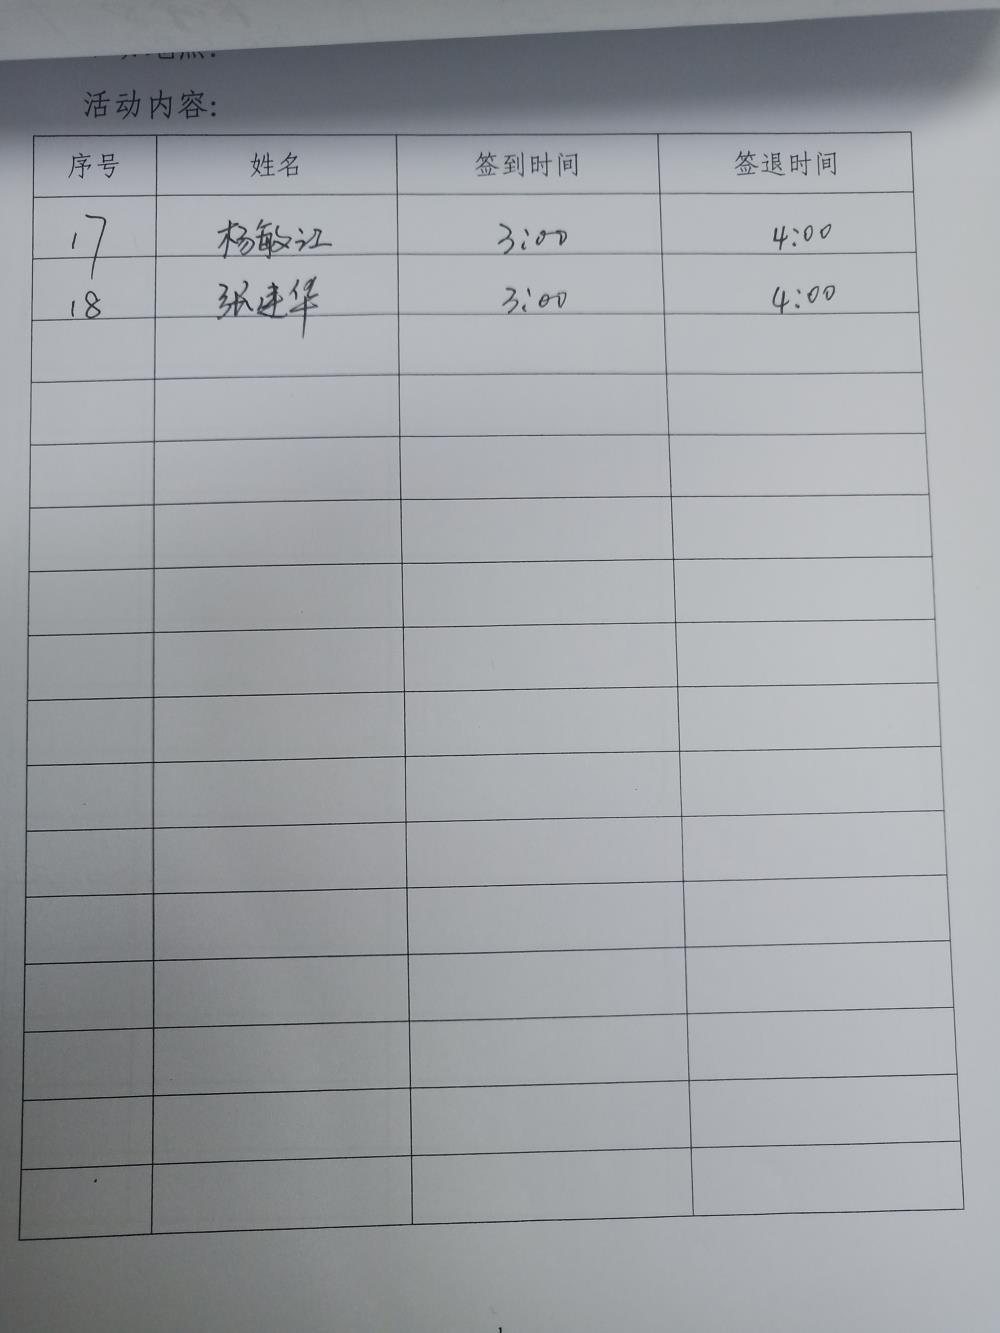 活动内容:
序号 姓名 签到时间 签退时间
17 杨敏江 3:00 4:00
18 张建华 3:00 4:00
1